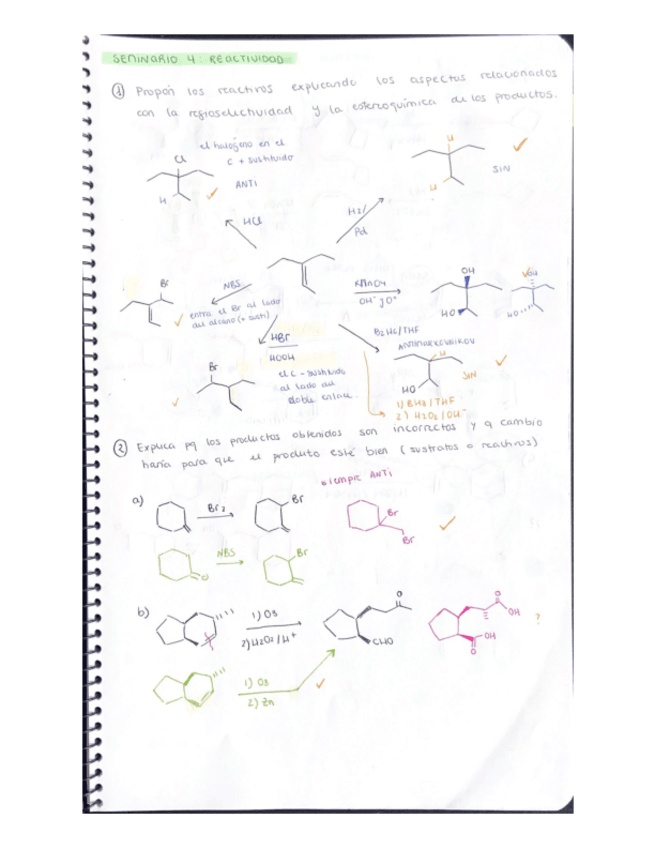 SEMINARIO 4: REACTIVIDAD
1) Propón los reactivos explicando los aspectos relacionados
con la regioselectividad y la estereoquímica de los productos.
el halógeno en el
C + sustituido
Cl
H
ANTI
HCl
H2/
Pd
H
H
SIN
NBS
Br
entra el Br al lado
del alcano (+ sust)
KMnO4
OH
HO
OH
HO
HBr
HOOH
Br
el C - sustituido
al lado del
doble enlace.
B2H6/THF
ANTIMARKOVNIKOV
H
HO
SIN
1) BH3/THF
2) H2O2/OH-
2) Explica pq los productos obtenidos son incorrectos y q cambio
haría para que el produto esté bien (sustratos o reactivos)
siempre ANTI
a)
Br2
Br
Br
Br
NBS
Br
b)
1) O3
2) H2O2/H+
O
CHO
O
OH
OH
O
?
1) O3
2) Zn